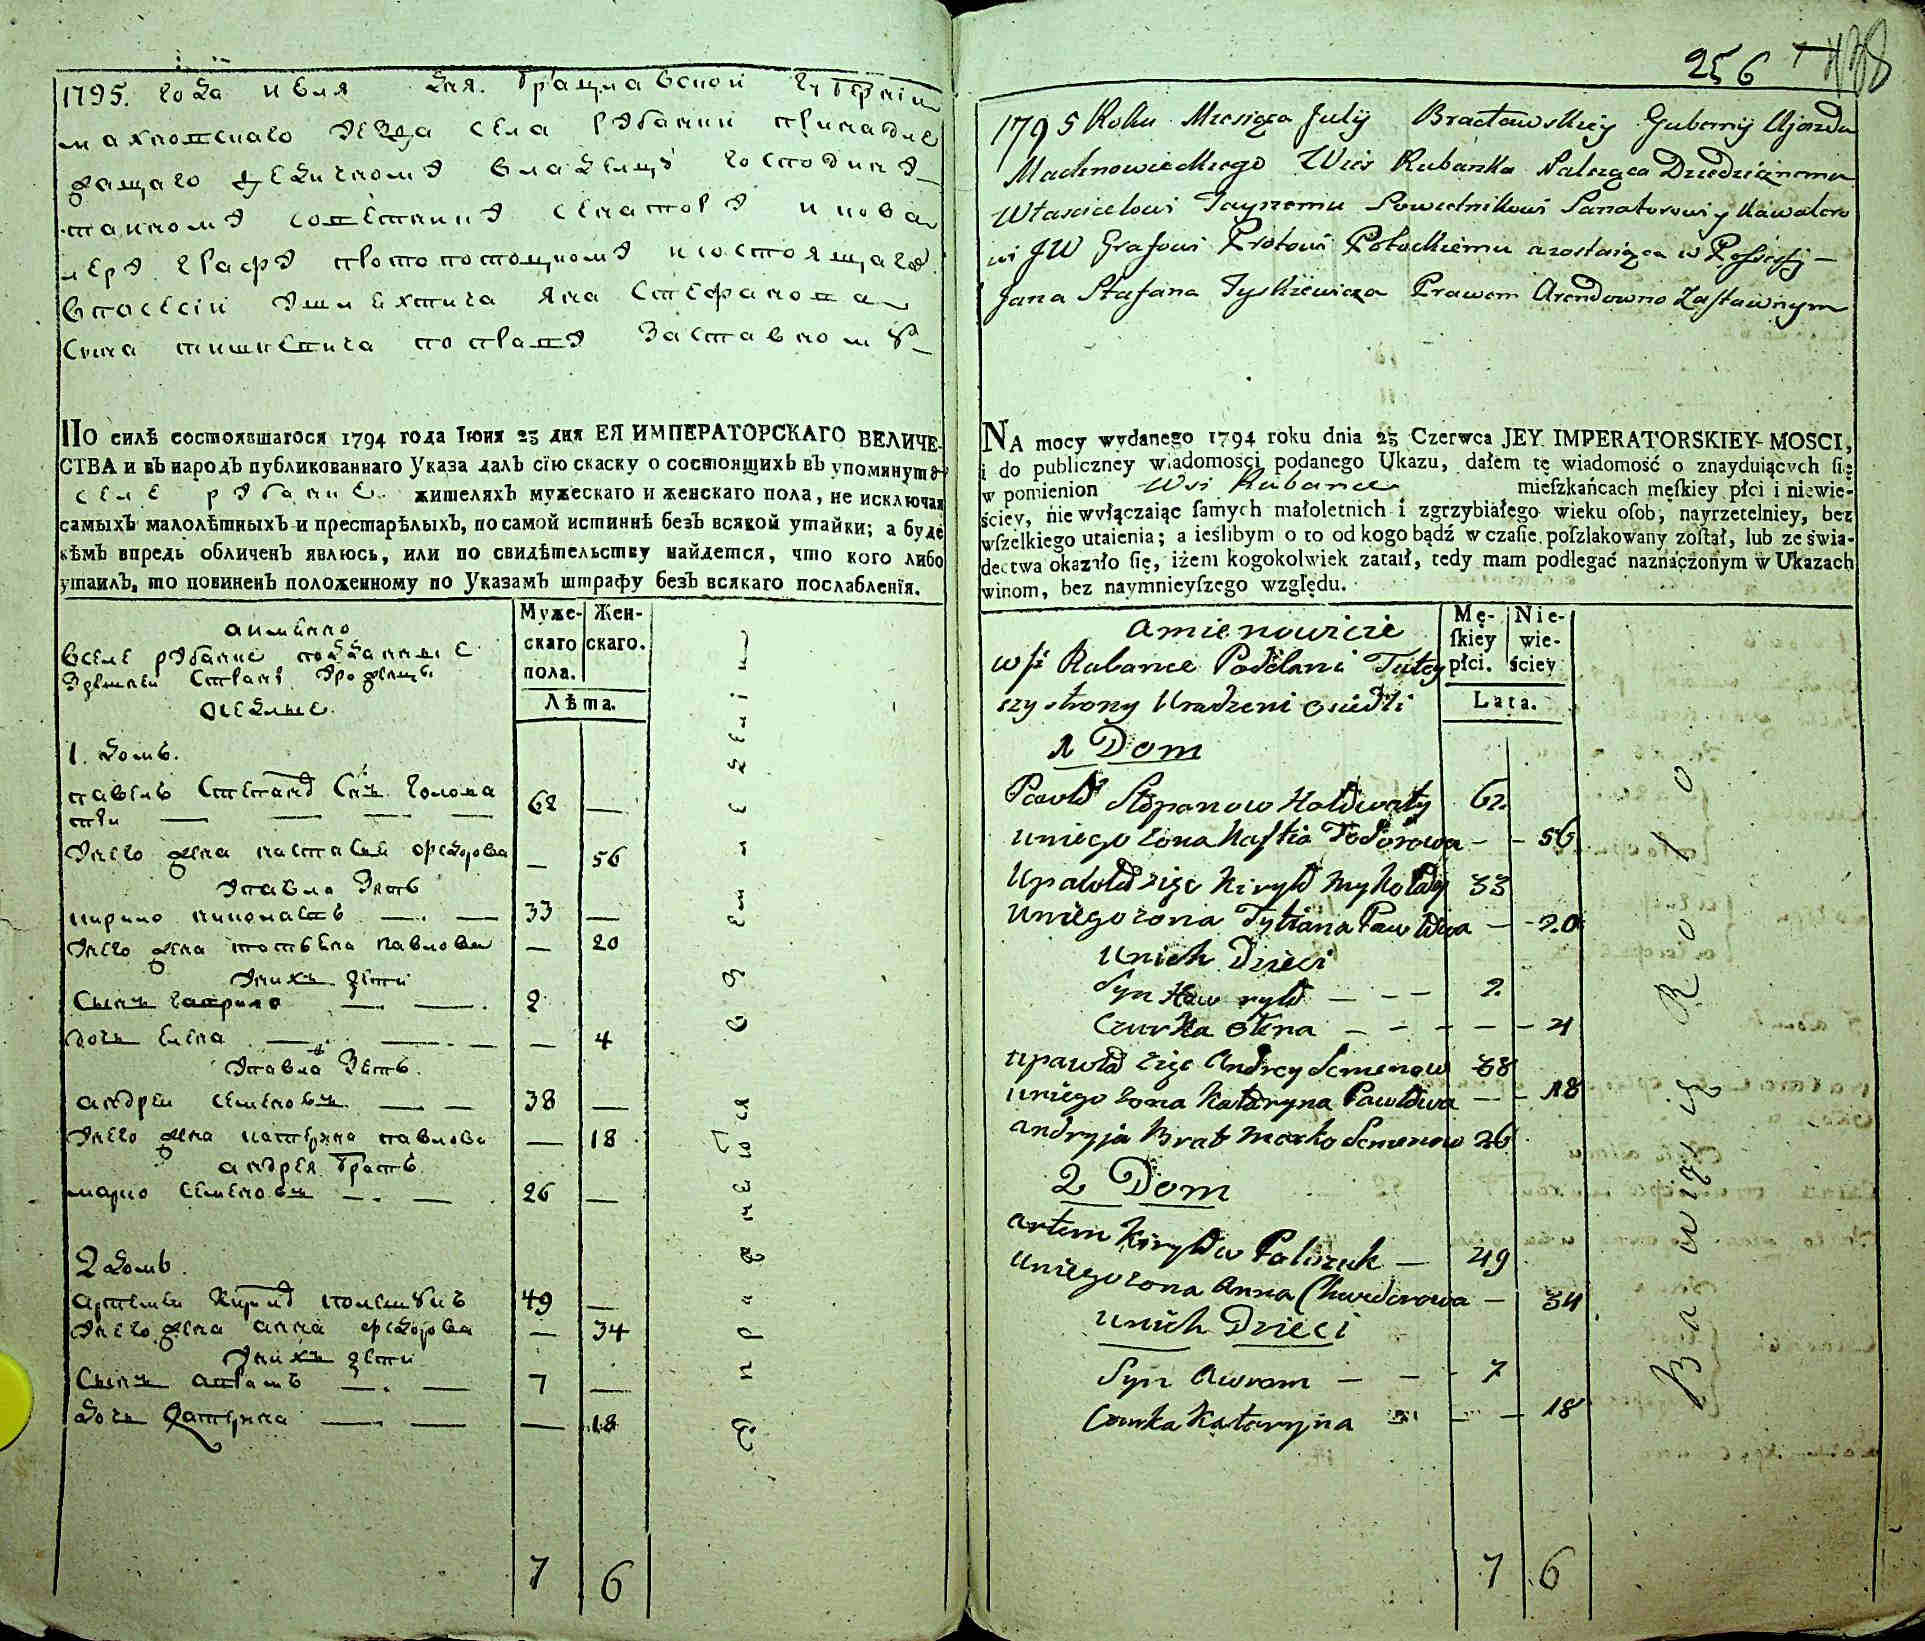 1795. года июля дня. Брацлавской губернии
махновскаго уезда села рубанки принадле
жащаго дедичному владелцу господину
тайному советнику сенатору и кава
леру графу протопотоцкому и состоящаго
в посесии у шляхтича яна стефанова
сына тишкевича по праву заставному
ПО силѣ состоявшагося 1794 года Іюня 23 дня ЕЯ ИМПЕРАТОРСКАГО ВЕЛИЧЕ-
СТВА и въ народъ публикованнаго Указа далъ сїю скаску о состоящихъ въ упомянутом
селе рубанке жителяхъ мужескаго и женскаго пола, не исключая
самыхъ малолѣтныхъ и престарѣлыхъ, по самой истиннѣ безъ всякой утайки; а буде
кѣмъ впредь обличенъ явлюсь, или по свидѣтельству найдется, что кого либо
утаилъ, то повиненъ положенному по Указамъ штрафу безъ всякаго послабленїя.
Муже- Жен-
скаго скаго.
пола.
Лѣта.
а имянно
в селе рубанке подданные
здешней страны урожденцы
оседлые
1. домъ.
павелъ степанов снъ голова
тый — — — — 62 —
у него жена настасия федорова — 56
у павла зять
кирило николаевъ — . — 33 —
у него жена татьяна павлова — 20
у них дети
сынъ гаврило — . — . 2 —
дочь елена — . — . — — 4
у павла зять.
андрей семеновъ — — 38 —
у него жена катерина павлова — 18
андрея братъ
марко семеновъ — . — 26 —
2 домъ.
артемей кирилов полищукъ 49 —
у него жена анна федорова — 34
у них дети
сынъ аврамъ — . — 7 —
дочь катерина — . — — 18
7 6
256
1795 Roku Miesiąca July Bractawskiey Gubernij Ujazdu
Machnowieckiego Wieś Rubanka Należąca Dziedzicznemu
Włascicelowi Taynemu Sowietnikowi Sanatorowi y Kawalero
wi JW Grafowi Protowi Potockiemu a zostaiąca w Posesyi —
Jana Stafana Tyszkiewicza Prawem Arendowno Zastawnym
NA mocy wydanego 1794 roku dnia 23 Czerwca JEY IMPERATORSKIEY MOSCI,
i do publiczney wiadomości podanego Ukazu, dałem tę wiadomość o znayduiących się
w pomienion Wsi Rubance mieſzkańcach męſkiey płci i niewie-
ściey, nie wyłączaiąc ſamych małoletnich i zgrzybiałego wieku oſob, nayrzetelniey, bez
wſzelkiego utaienia; a ieślibym o to od kogo bądź w czaſie poſzlakowany zoſtał, lub ze świa-
dectwa okazało ſię, iżem kogokolwiek zataił, tedy mam podlegać naznaczonym w Ukazach
winom, bez naymnieyſzego względu.
Mę- Nie-
ſkiey wie-
płci. ściey
Lata.
amienowicie
w si Rubance Poddani Tutey
szy strony Uradzeni Osiedli
1 Dom
Pawło Stepanow Hołowaty 62
u niego żona Nastia Todorowa — - 56
U pawła zięć Kiryło Mykołay 33
U niego żona Tytiana Pawłowa — - 20
U nich Dzieci
Syn Hawryło — — — 2
Curka Olena — — — — — 4
u pawła zięć Andrey Semenow 38
u niego żona Kataryna Pawłowa — — 18
andryja Brat Marko Semenow 26
2 Dom
artem Kiryłow Poliszuk — 49
U niego żona Anna Chwedorowa — 34
u nich Dzieci
Syn Awram — — - 7
Curka Kataryna — — — 18
7 6